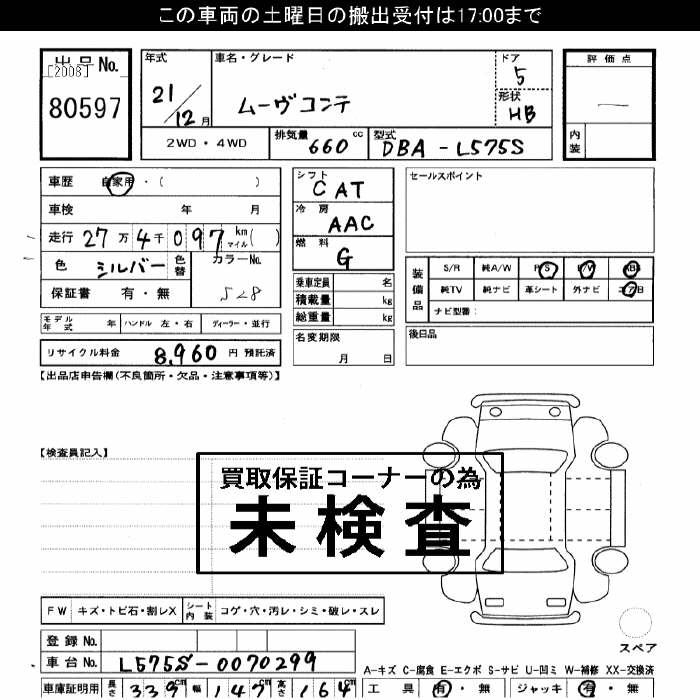 この車両の土曜日の搬出受付は17:00まで
出品No.
[2008]
80597
年式
21/12月
車名・グレード
ムーヴコンテ
ドア
5
形状
HB
2WD・4WD
排気量
660 cc
型式
DBA-L575S
評価点
―
内装
車歴 自家用・( )
車検 年 月
走行 27万4千097 km マイル( )
色 シルバー
色替
カラーNo.
S28
保証書 有・無
シフト
CAT
冷房
AAC
燃料
G
乗車定員 名
積載量 kg
総重量 kg
名変期限
月 日
セールスポイント
装備品
S/R 純A/W P/S P/W ABS
純TV 純ナビ 革シート 外ナビ エアB
ナビ型番:
後日品
モデル年式 年 ハンドル 左・右 ディーラー・並行
リサイクル料金 8,960 円 預託済
【出品店申告欄(不良箇所・欠品・注意事項等)】
【検査員記入】
買取保証コーナーの為
未検査
FW キズ・トビ石・割レX シート内装 コゲ・穴・汚レ・シミ・破レ・スレ
スペア
登録No.
車台No. L575S-0070299
A-キズ C-腐食 E-エクボ S-サビ U-凹ミ W-補修 XX-交換済
車庫証明用 長さ 339cm 幅 147cm 高さ 164cm
工具 有・無 ジャッキ 有・無